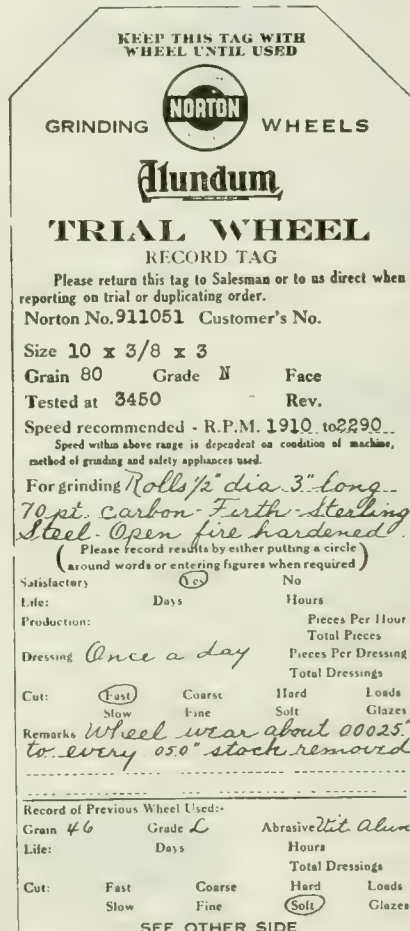 KEEP THIS TAG WITH
WHEEL UNTIL USED
GRINDING NORTON WHEELS
Alundum
TRIAL WHEEL
RECORD TAG
Please return this tag to Salesman or to us direct when
reporting on trial or duplicating order.
Norton No. 911051 Customer's No.
Size 10 x 3/8 x 3
Grain 80 Grade N Face
Tested at 3450 Rev.
Speed recommended - R.P.M. 1910 to 2290
Speed within above range is dependent on condition of machine,
method of grinding and safety appliances used.
For grinding Rolls 1/2" dia 3" long
70 pt. carbon - Firth-Sterling
Steel - Open fire hardened.
(Please record results by either putting a circle
around words or entering figures when required)
Satisfactory Yes No
Life: Days Hours
Production: Pieces Per Hour
Total Pieces
Dressing Once a day Pieces Per Dressing
Total Dressings
Cut: Fast Coarse Hard Loads
Slow Fine Soft Glazes
Remarks Wheel wear about 00025"
to every 050" stock removed
Record of Previous Wheel Used:-
Grain 46 Grade L Abrasive Vit. Alun
Life: Days Hours
Total Dressings
Cut: Fast Coarse Hard Loads
Slow Fine Soft Glazes
SEE OTHER SIDE